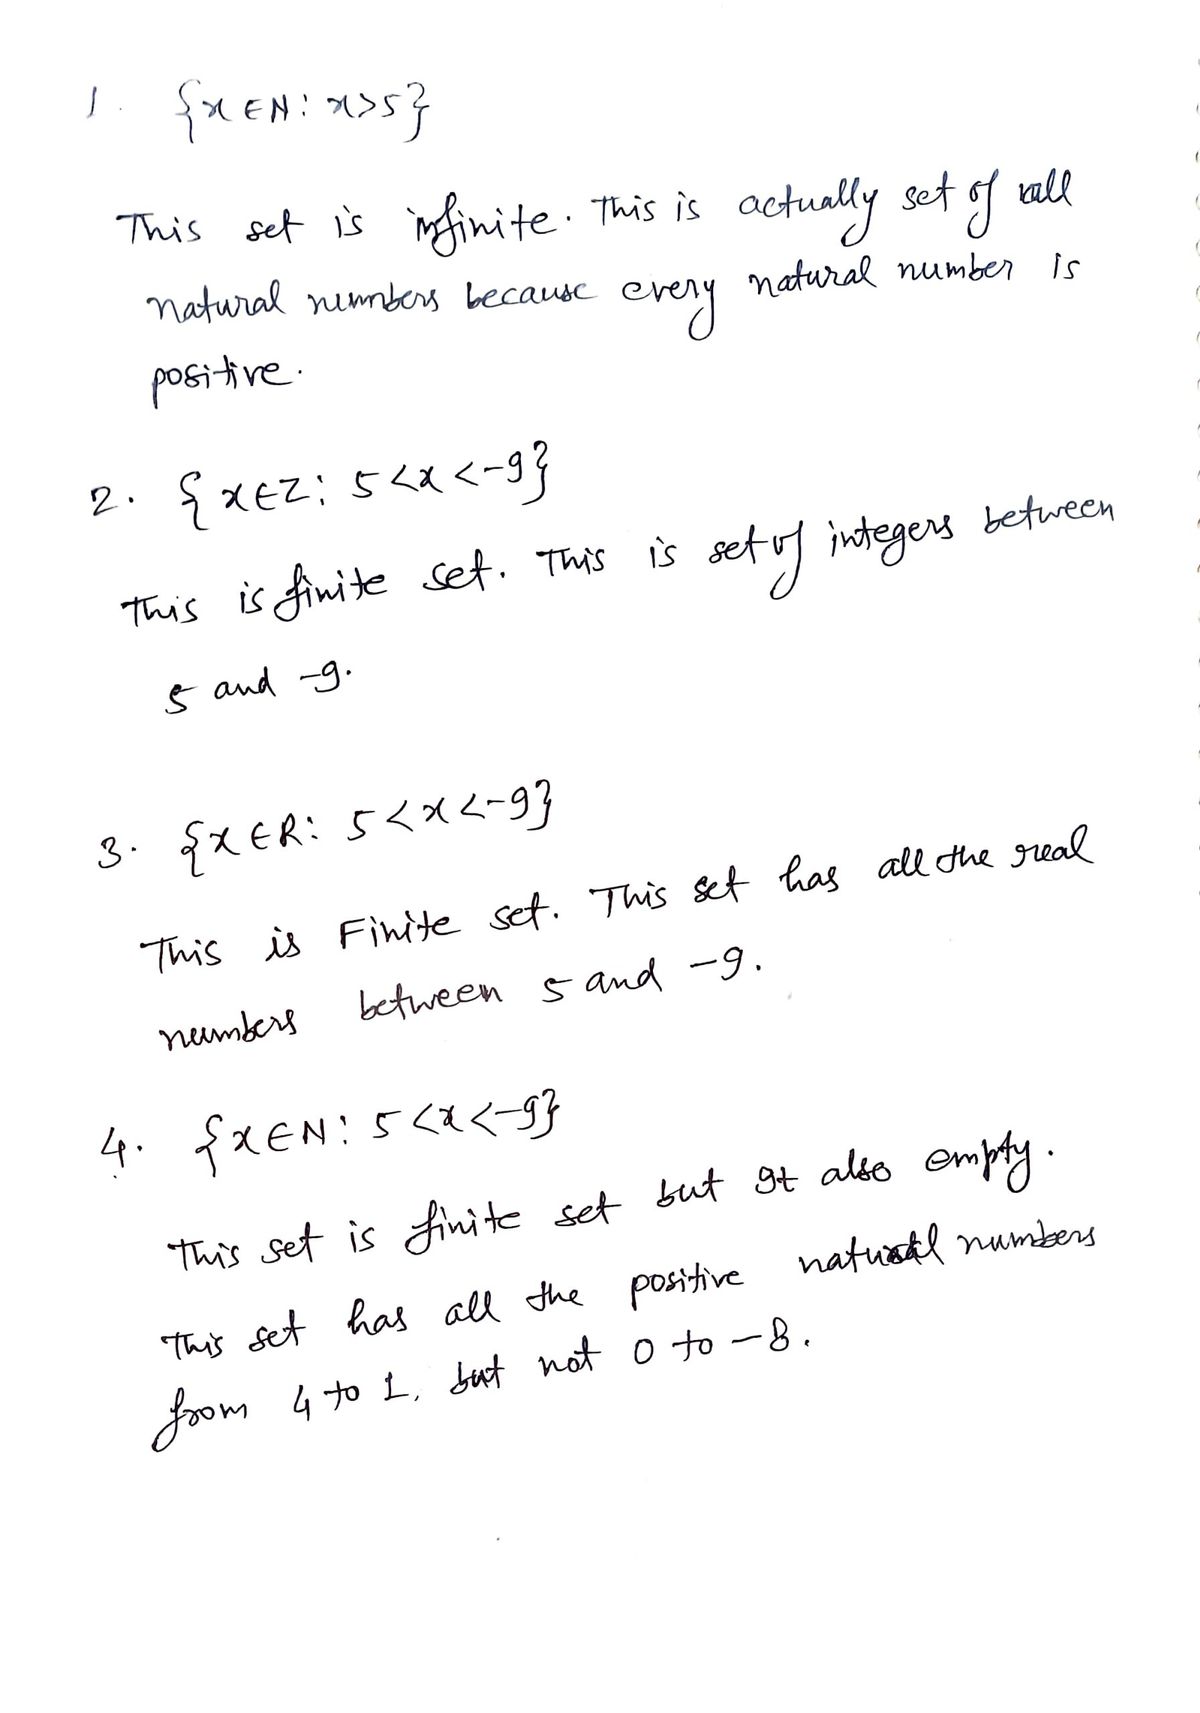 1. {x∈N: x>5}
This set is infinite. This is actually set of all
natural numbers because every natural number is
positive.
2. {x∈Z: 5<x<-9}
This is finite set. This is set of integers between
5 and -9.
3. {x∈R: 5<x<-9}
This is Finite set. This set has all the real
numbers between 5 and -9.
4. {x∈N: 5<x<-9}
This set is finite set but It also empty.
This set has all the positive natural numbers
from 4 to 1, but not 0 to -8.